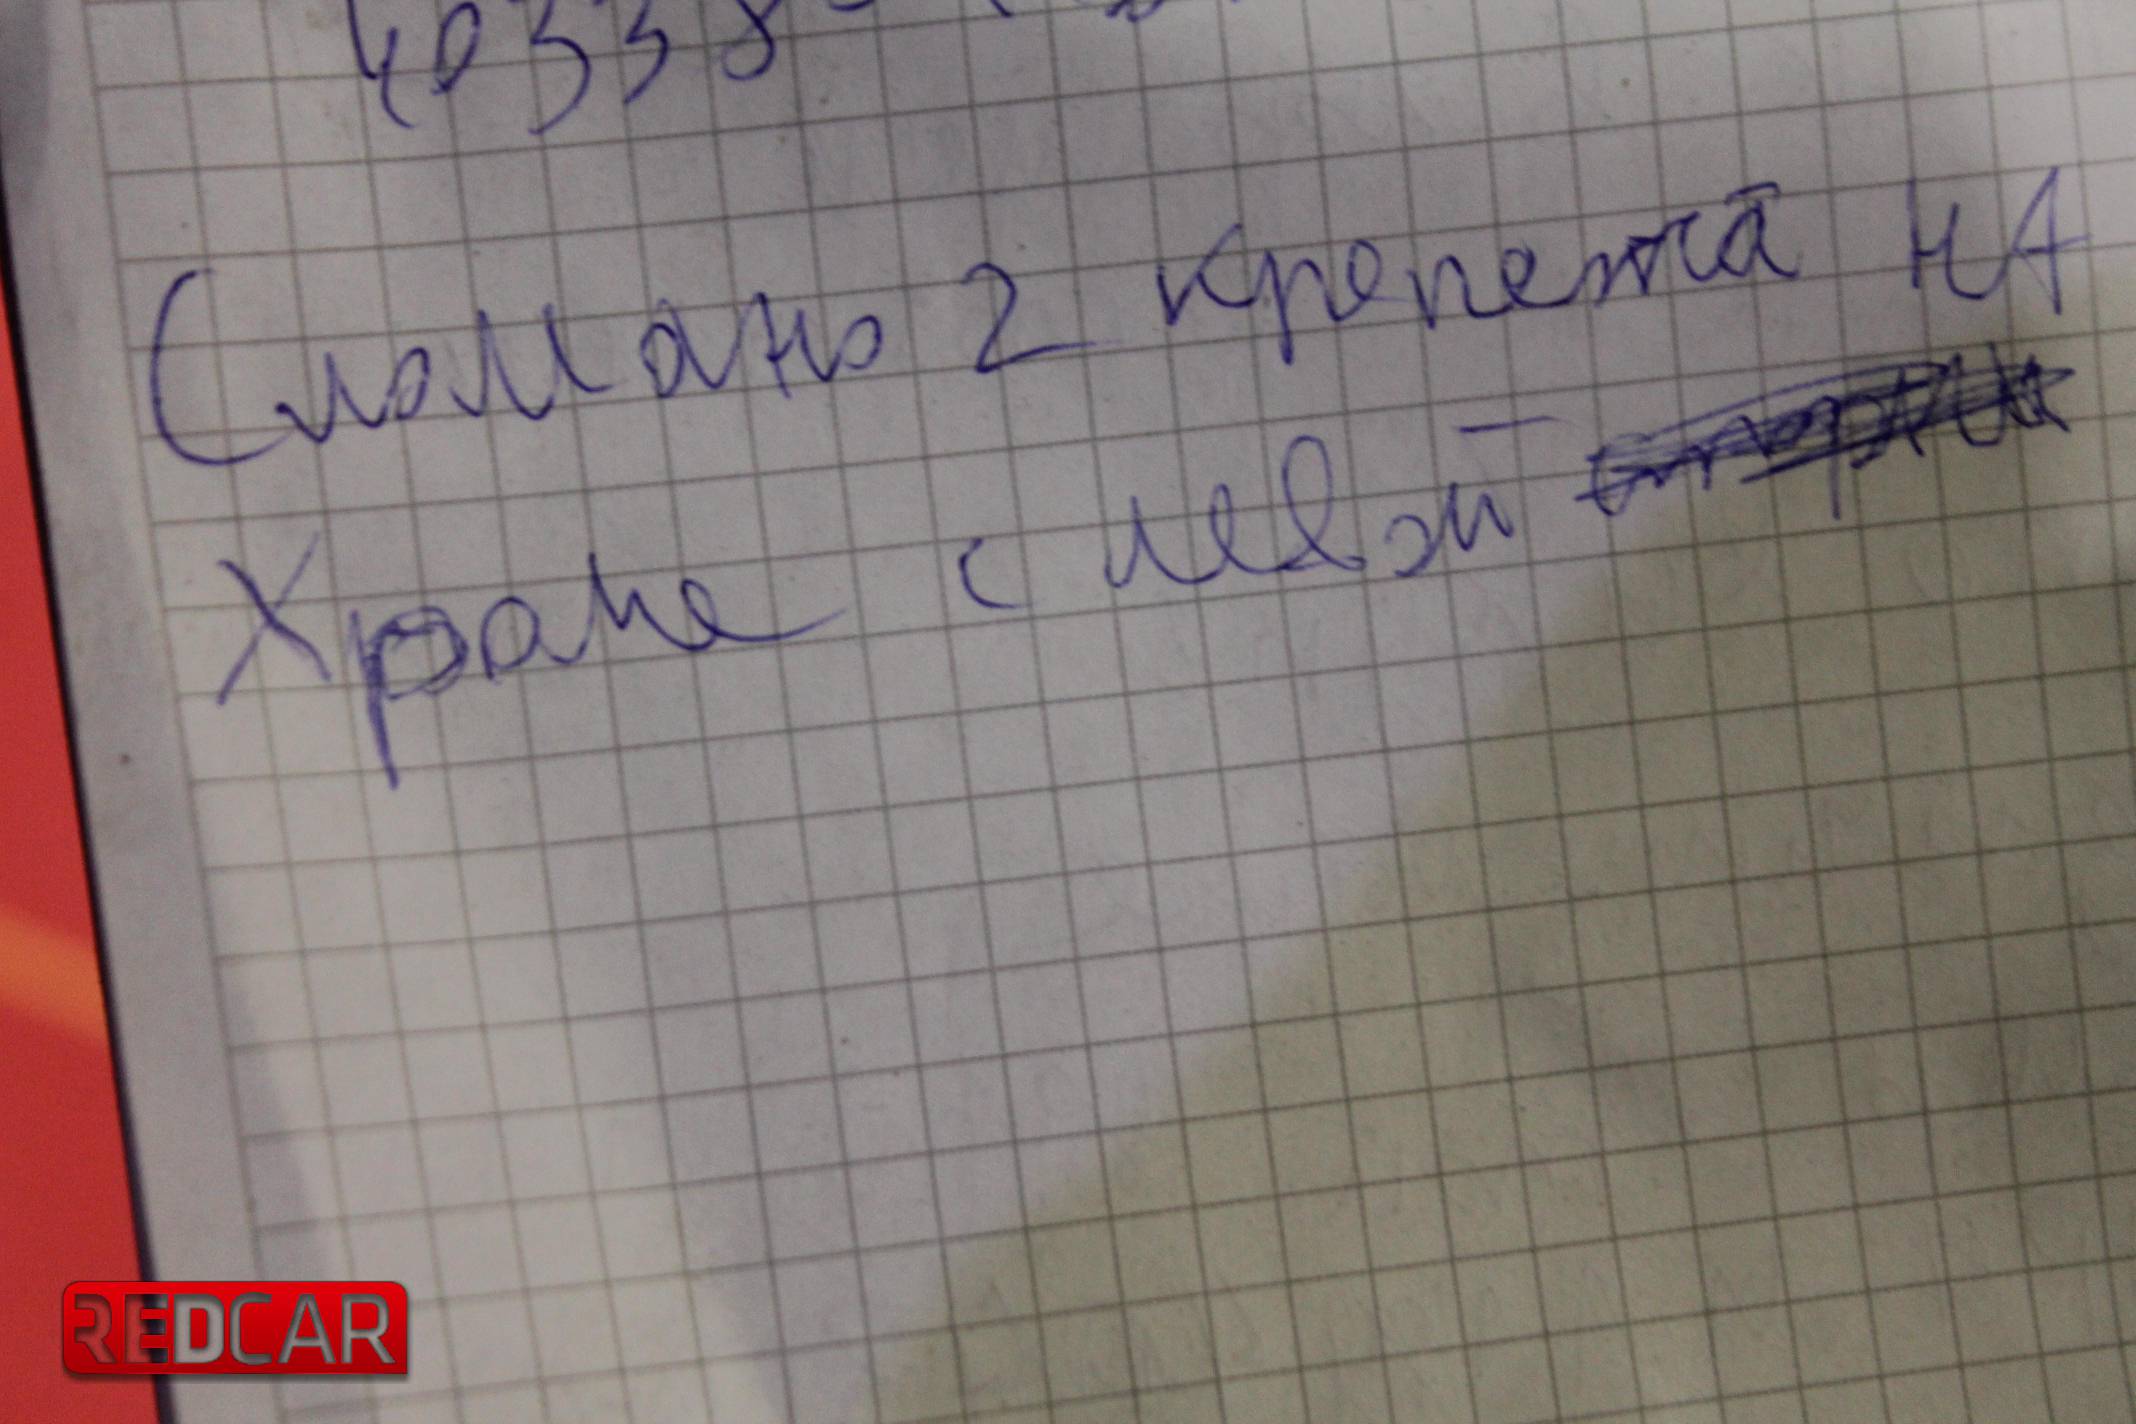 40338
Сломано 2 крепежа на
Хроне с левой
REDCAR